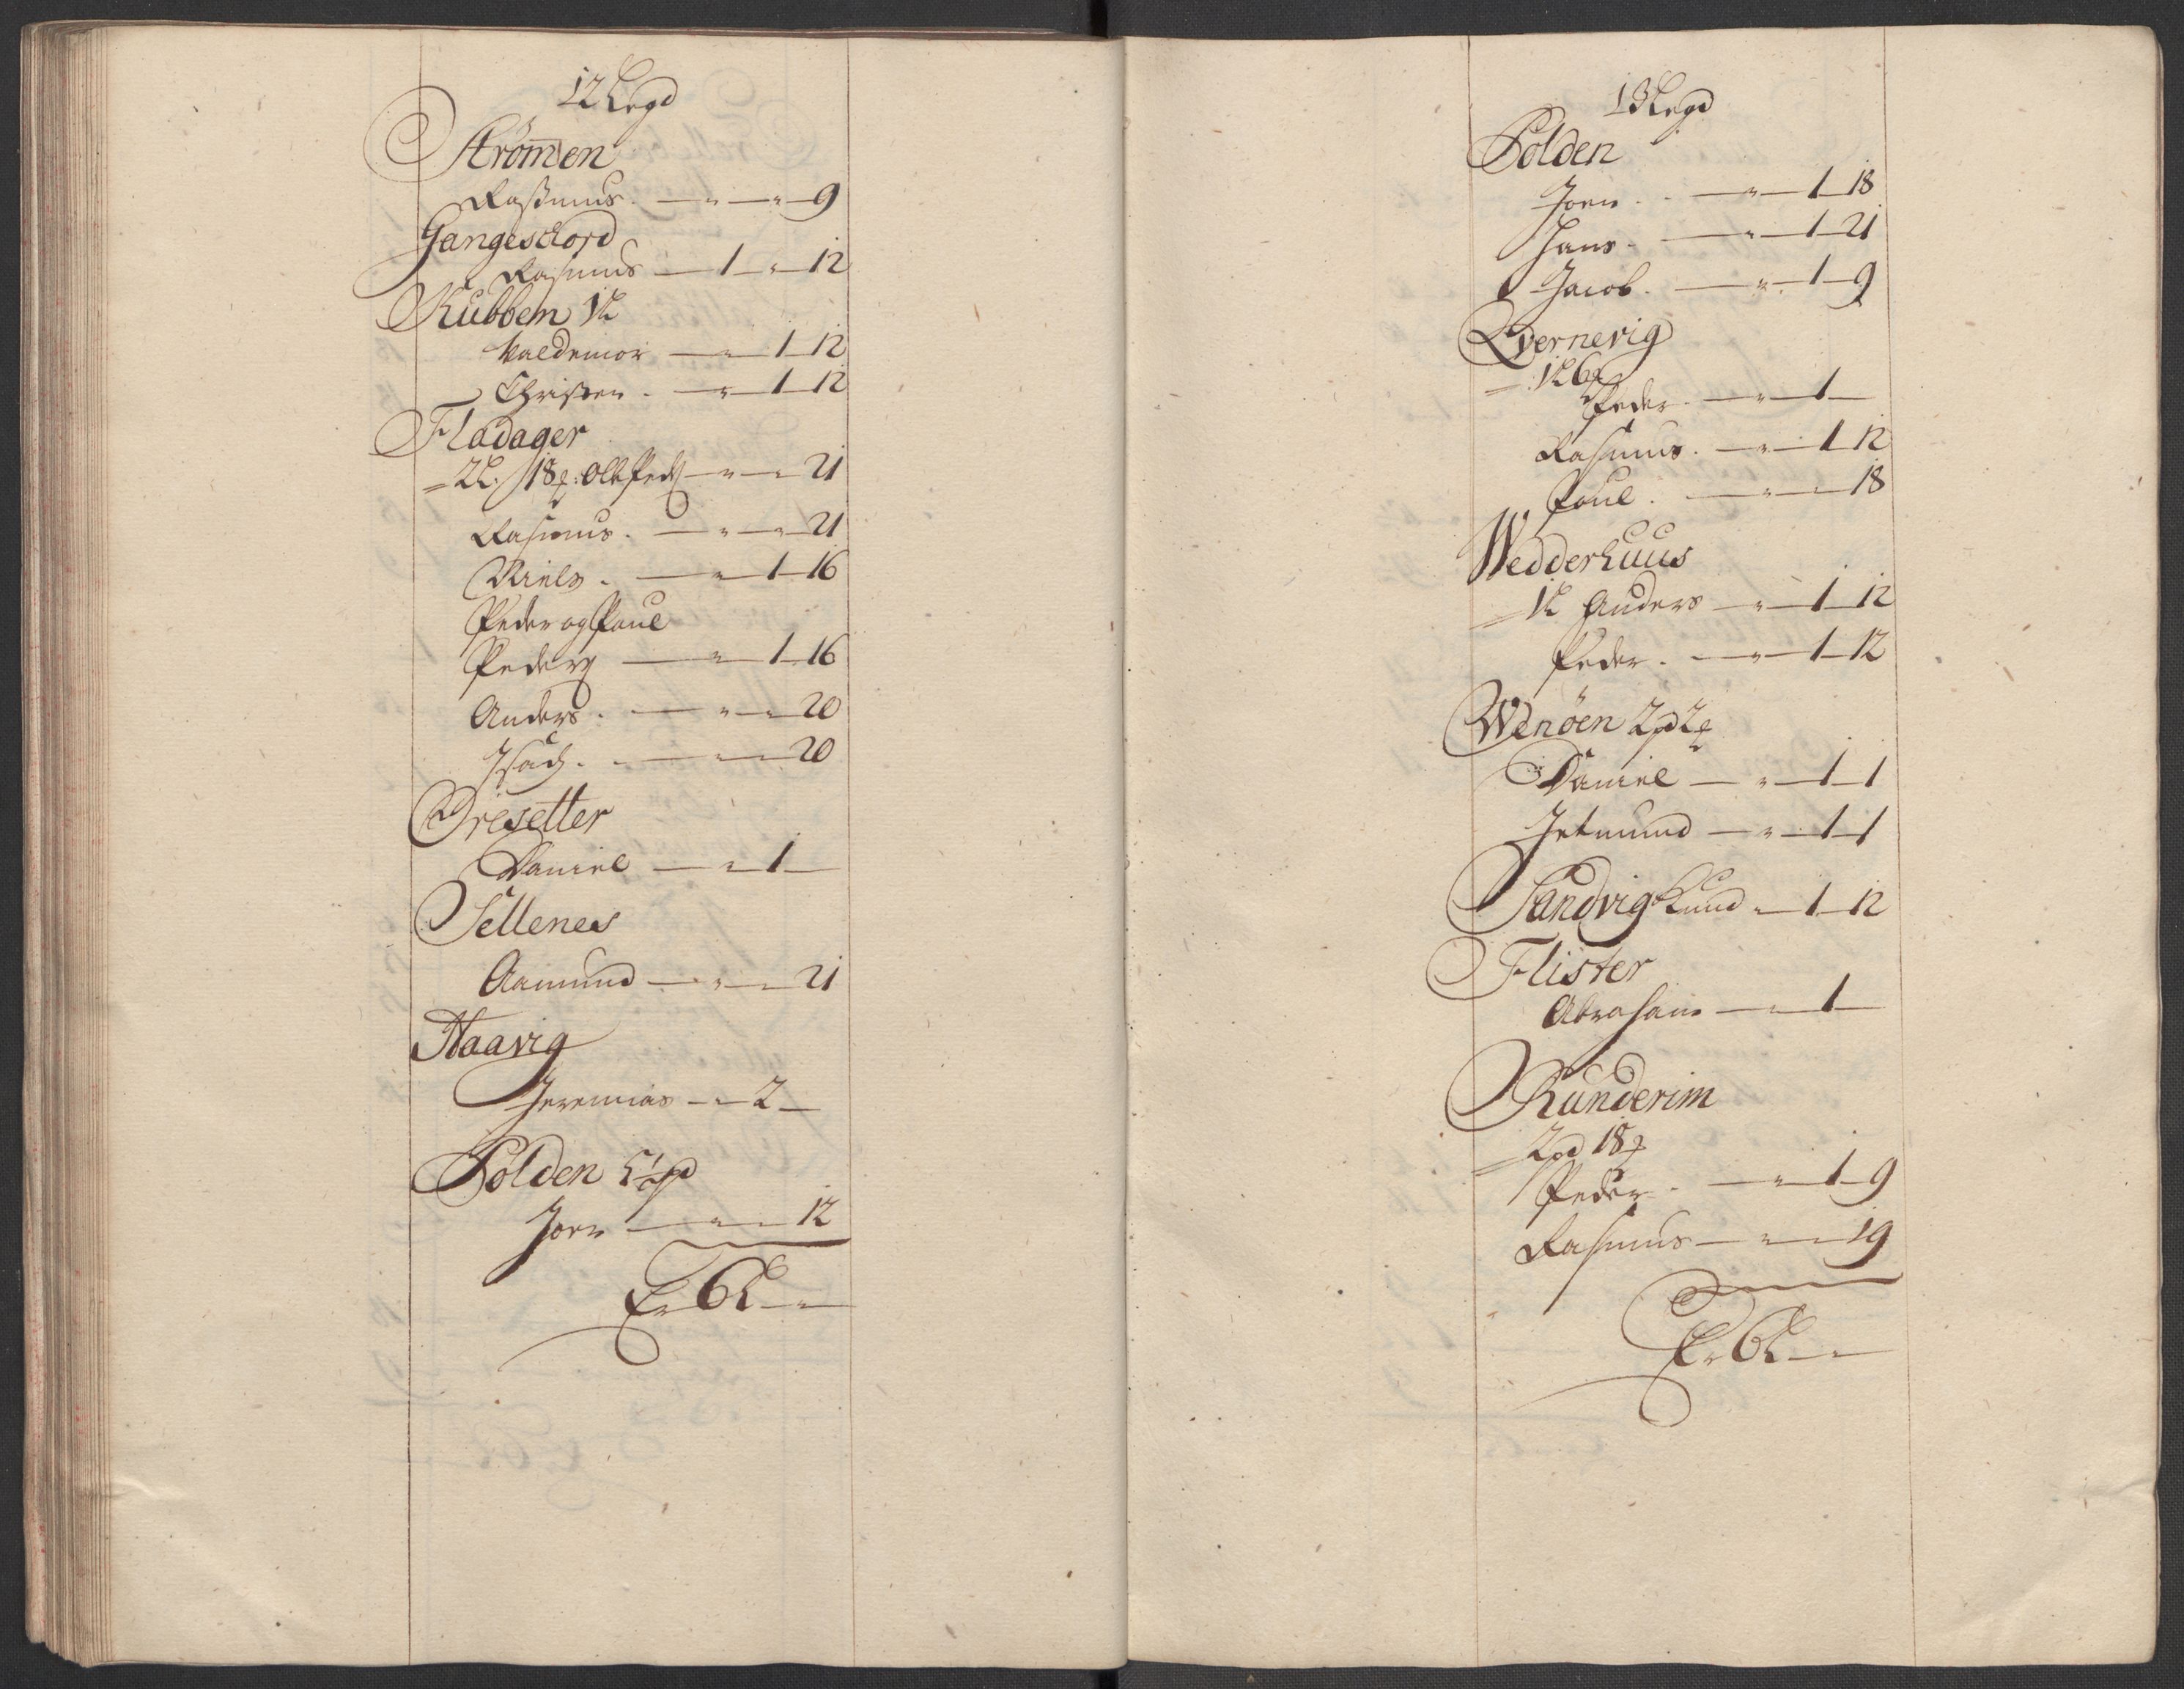 12 Legd
Strömen
Rasmus. — " — " — 9
Gangeschord
Rasmus — 1 — " — 12
Kubbem 1 L
Valdemor — " — 1 — 12
Christen. — " — 1 — 12
Fladager
= 2 L. 18 p: Olle Peders — " — " — 21
Rasmus. — " — " — 21
Niels. — " — 1 — 16
Peder og Poul
Peders — " — 1 — 16
Anders. — " — " — 20
Isach. — " — 20
Dresetter
Daniel — " — 1 —
Settenes
Aamund — " — " — 21
Staavig
Jeremias — " — 2 —
Folden ½ pd
Joen — " — " — 12
Er 6 L — " —
13 Legd
Folden
Joen. — " — 1 — 18
Hans. — " — 1 — 21
Jacob. — " — 1 — 9
Qvernevig
= 1 L 6 p
Peder. — " — 1 —
Rasmus. — " — 1 — 12
Poul. — " — " — 18
Wedderhuus
= 1 L Anders — " — 1 — 12
Peder. — " — 1 — 12
Wenöen 2 pd 2 p
Daniel — " — 1 — 1
Jetmund — " — 1 — 1
Sandvig Knud " — 1 — 12
Flister
Abraham — " — 1 —
Runderim
= 2 pd 18 p
Peder. — " — 1 — 9
Rasmus — " — " — 19
Er 6 L — " —